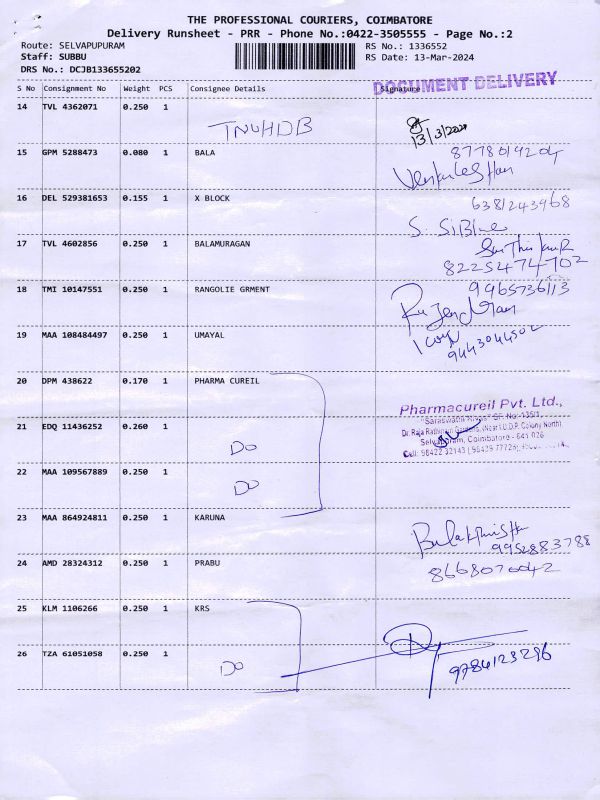 THE PROFESSIONAL COURIERS, COIMBATORE
Delivery Runsheet - PRR - Phone No.:0422-3505555 - Page No.:2
Route: SELVAPUPURAM
RS No.: 1336552
Staff: SUBBU
RS Date: 13-Mar-2024
DRS No.: DCJB133655202
DOCUMENT DELIVERY
S No Consignment No Weight PCS Consignee Details Signature
14 TVL 4362071 0.250 1
TNUHDB
13/3/2024
15 GPM 5288473 0.080 1 BALA
8778019204
16 DEL 529381653 0.155 1 X BLOCK
6381243968
17 TVL 4602856 0.250 1 BALAMURAGAN
8225474702
18 TMI 10147551 0.250 1 RANGOLIE GRMENT
9965736113
19 MAA 108484497 0.250 1 UMAYAL
9443044502
20 DPM 438622 0.170 1 PHARMA CUREIL
Pharmacureil Pvt. Ltd.,
21 EDQ 11436252 0.260 1
DO
Selvapuram, Coimbatore - 641 026
22 MAA 109567889 0.250 1
DO
23 MAA 864924811 0.250 1 KARUNA
9952883788
24 AMD 28324312 0.250 1 PRABU
8668076042
25 KLM 1106266 0.250 1 KRS
26 TZA 61051058 0.250 1
DO
9786123296